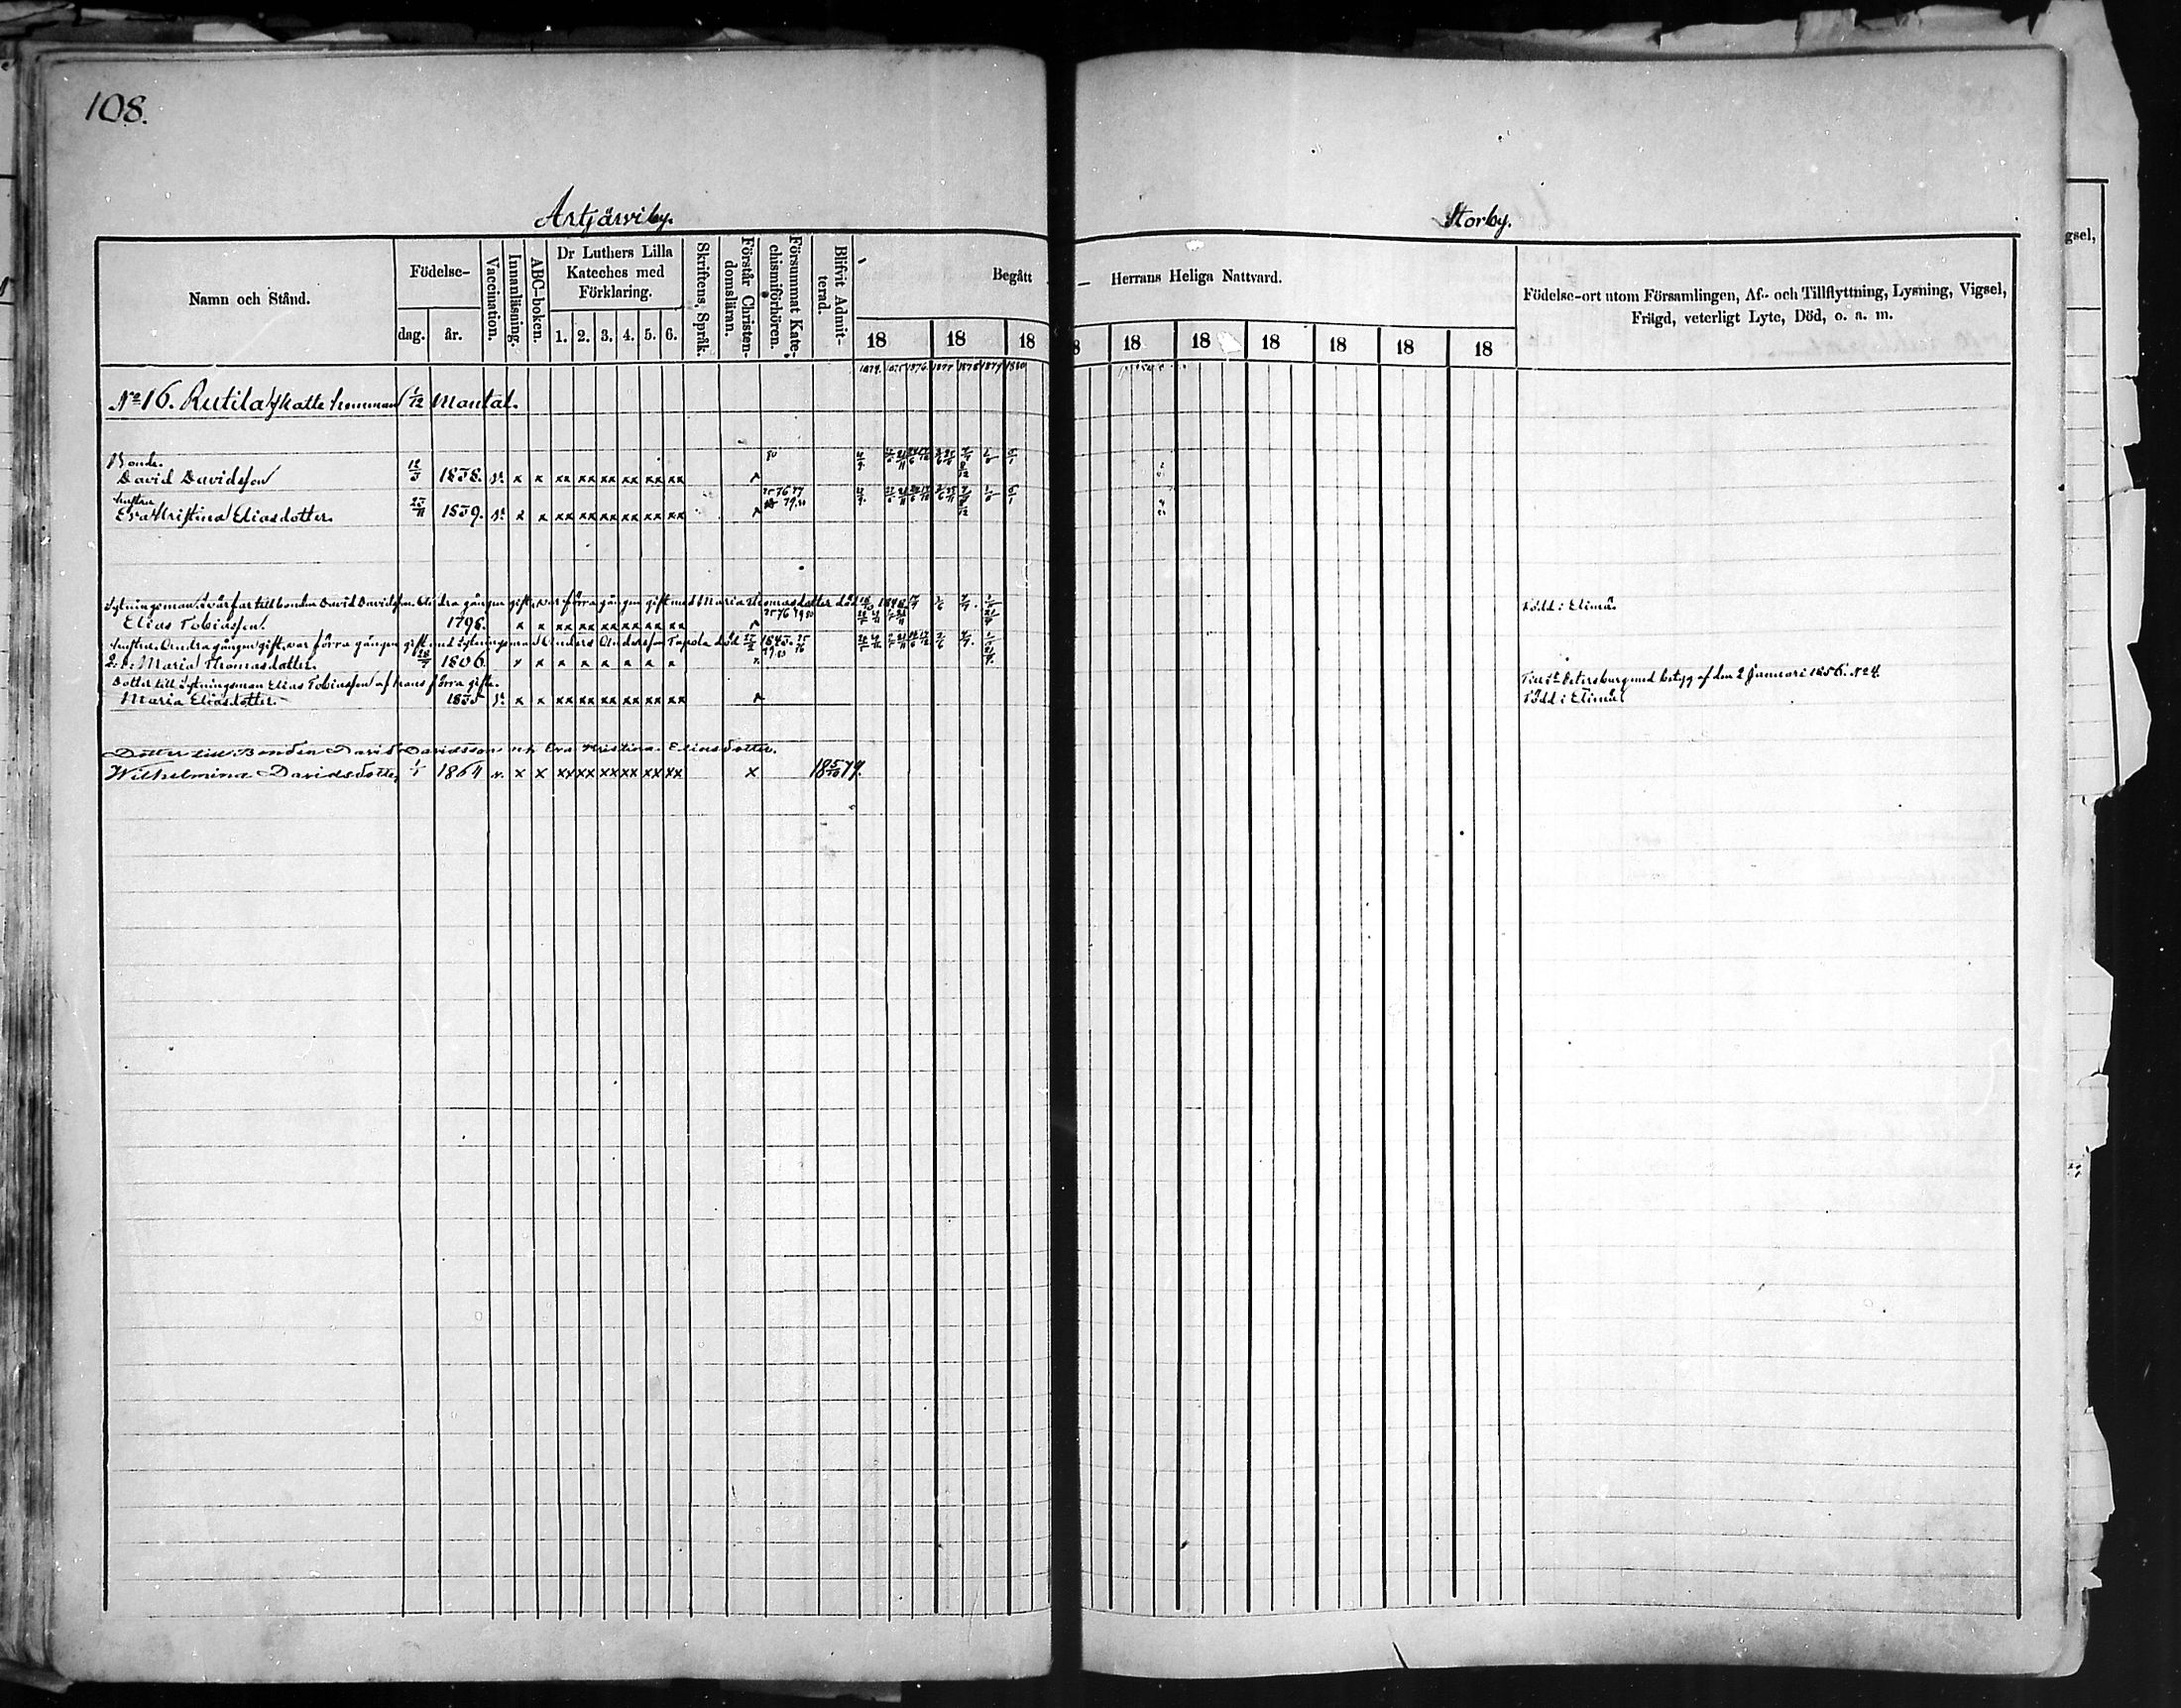 108.
Artjärwiby.
Storby.
Namn och Stånd.
Födelse-
dag.
år.
Vaccination.
Innanläsning.
ABC-boken.
Dr Luthers Lilla
Kateches med
Förklaring.
1. 2. 3. 4. 5. 6.
Skriftens Språk.
Förstår Christen-
domsläran.
Försummat Kate-
chismiförhören.
Blifvit Admit-
terad.
Begått – Herrans Heliga Nattvard.
18 18 18 8 18 18 18 18 18 18
Födelse-ort utom Församlingen, Af- och Tillflyttning, Lysning, Vigsel,
Frägd, veterligt Lyte, Död, o. a. m.
1876 1877 1878 1879 1880
No 16. Rutila Skatte hemman 1/12 Mantal.
Bonde.
David Davidsson 1838. x x xx xx xx xx xx xx
hustru
Eva Kristina Eliasdotter. 1839. x x xx xx xx xx xx xx
Sytningsman, svärfar till bonden David Davidsson. andra gången gift, var förra gången gift med Maria Thomasdotter död
Född i Elimä.
Elias Tobiasson. 1798. x x xx xx xx xx xx xx
hustru. Andra gången gift, var förra gången gift med sytningsman Anders Andersson död
Maria Thomasdotter. 1806. x x x x x x x x
Dotter till sytningsman Elias Tobiasson af hans förra gifte.
Till St Petersburg med betyg af den 2 Januari 1856. No 4.
Maria Eliasdotter. 1835 x x xx xx xx xx xx xx
Född i Elimä
Dotter till Bonden David Davidsson och Eva Kristina Eliasdotter.
Wilhelmina Davidsdotter 1/1 1864 x x xx xx xx xx xx xx x 18 5/10 79.
gsel,